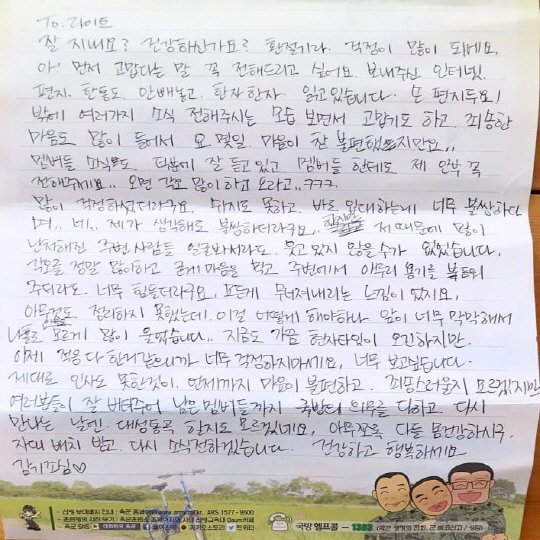 To. 라이트
잘 지내요? 건강하신가요? 환절기라 걱정이 많이 되네요.
아! 먼저 고맙다는 말 꼭 전해드리고 싶어요. 보내주신 인터넷
편지. 한통도 안빼놓고. 한자한자. 읽고있습니다. 손 편지두요!
밖에 여러가지 소식 전해주시는 모습 보면서 고맙기도 하고. 죄송한
마음도 많이 들어서 요 몇일. 마음이 참 불편했었지만요..
멤버들 소식들도 덕분에 잘 듣고 있고 멤버들 한테도 제 안부 꼭
전해주세요.. 오면 각오 많이하고 오라고..ㅋㅋㅋ
많이 걱정하셨더라구요. 쉬지도 못하고. 바로 입대하는게 너무 불쌍하다
며.. 네.. 제가 생각해도 불쌍하더라구요.. 하지만 저 때문에 많이
난처해진 주변사람들 얼굴봐서라도 웃고 있지 않을수가 없었습니다.
각오를 정말 많이하고 굳게 마음을 먹고 주변에서 아무리 용기를 북돋아
주더라도. 너무 힘들더라구요. 모든게 무너져내리는 느낌이 있지요.
아무것도 정리하지 못했는데. 이걸 어떻게 해야하나 앞이 너무 막막해서
나도 모르게 많이 울었습니다.. 지금도 가끔 현자타임이 오긴하지만.
이제 적응 다 한거같으니까 너무 걱정하지마세요. 너무 보고싶습니다.
제대로 인사도 못한것이. 언제까지 마음이 불편하고. 죄스러울지 모르겠지만
여러분들이 잘 버텨주어 남은 멤버들까지 국방의 의무를 다하고 다시
만나는 날엔. 대성통곡 할지도 모르겠네요. 아무쪼록 다들 몸건강하시구.
자대 배치 받고. 다시 소식전하겠습니다. 건강하고 행복하세요
감기조심♡
육군 SNS 대한민국 육군 카카오스토리 트위터
국방 헬프콜 - 1303